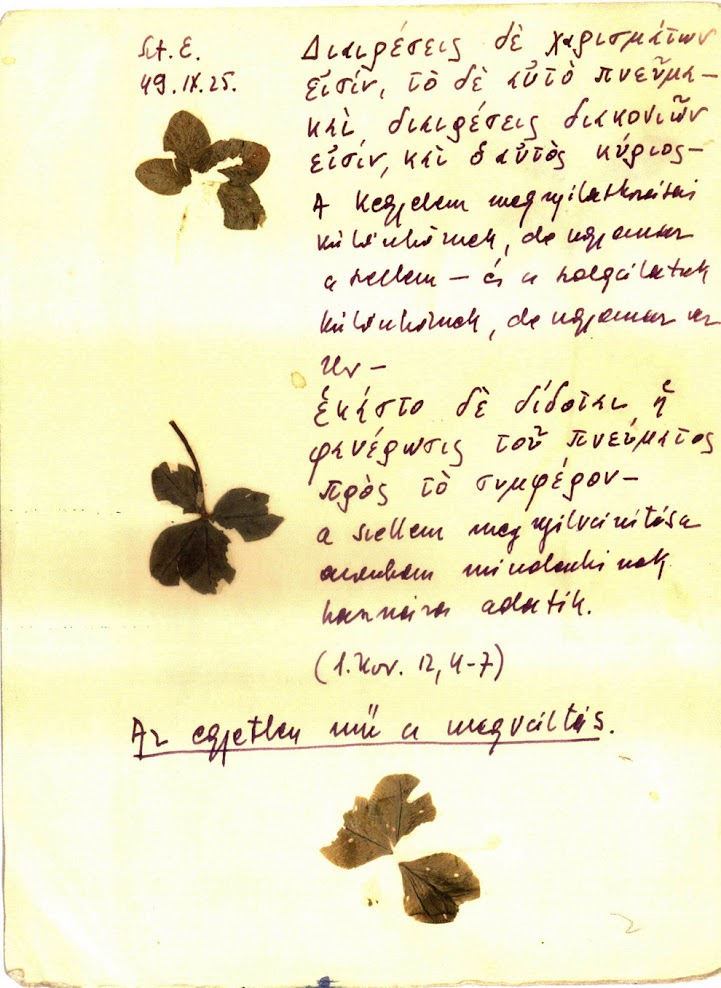 Szt. E.
49. IX. 25.
Διαιρέσεις δὲ χαρισμάτων
εἰσίν, τὸ δὲ αὐτὸ πνεῦμα –
καὶ διαιρέσεις διακονιῶν
εἰσίν, καὶ ὁ αὐτὸς κύριος –
A kegyelem megnyilatkozásai
különböznek, de ugyanaz
a szellem – és a szolgálatok
különböznek, de ugyanaz az
Úr –
ἑκάστο δὲ δίδοται ἡ
φανέρωσις τοῦ πνεύματος
πρὸς τὸ συμφέρον –
a szellem megnyilvánítása
azonban mindenkinek
haszonra adatik.
(1. Kor. 12, 4-7)
Az egyetlen mű a megváltás.
2